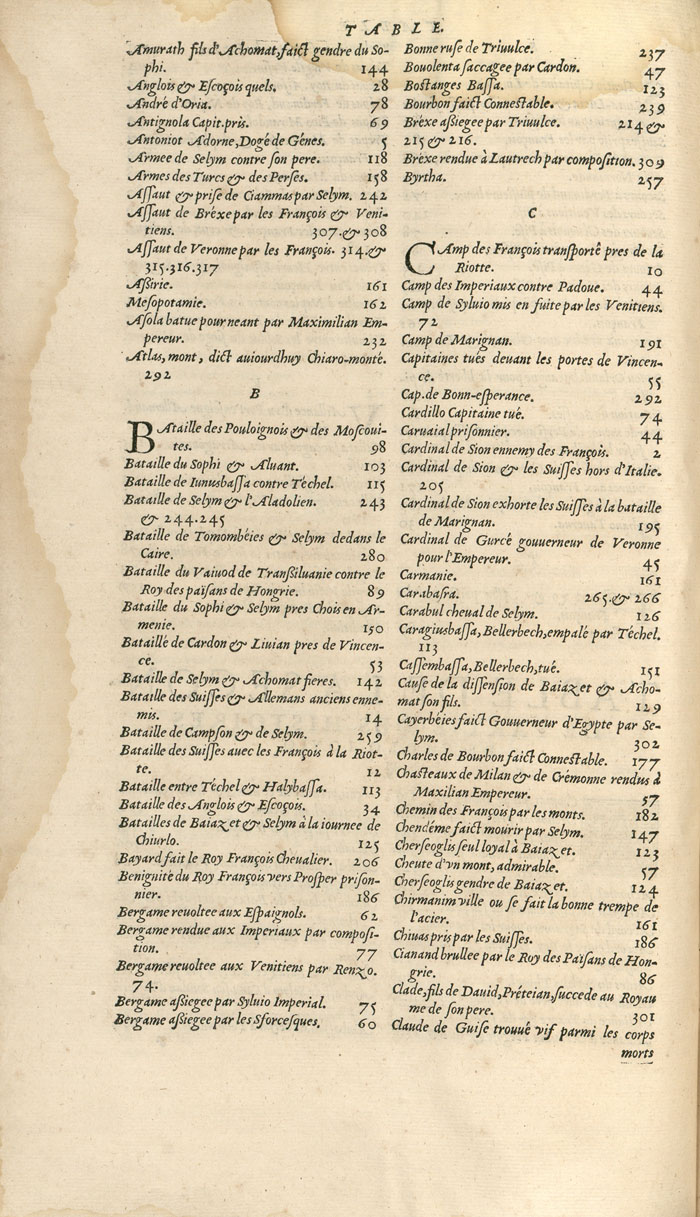 TABLE.
Amurath fils d'Achomat, faict gendre du So-
phi. 144
Anglois & Escoçois quels. 28
André d'Oria. 78
Antignola Capit. pris. 69
Antoniot Adorne, Dogé de Génes. 5
Armee de Selym contre son pere. 118
Armes des Turcs & des Perses. 158
Assaut & prise de Ciammas par Selym. 242
Assaut de Brèxe par les François & Veni-
tiens. 307. & 308
Assaut de Veronne par les François. 314. &
315. 316. 317
Assirie. 161
Mesopotamie. 162
Asola batue pour neant par Maximilian Em-
pereur. 232
Atlas, mont, dict auiourdhuy Chiaro-monté.
292
B
BAtaille des Pouloignois & des Moscoui-
tes. 98
Bataille du Sophi & Aluant. 103
Bataille de Iunusbassa contre Téchel. 115
Bataille de Selym & l'Aladolien. 243
& 244. 245
Bataille de Tomombéies & Selym dedans le
Caire. 280
Bataille du Vaiuod de Transsiluanie contre le
Roy des païsans de Hongrie. 89
Bataille du Sophi & Selym pres Chois en Ar-
menie. 150
Bataille de Cardon & Liuian pres de Vincen-
ce. 53
Bataille de Selym & Achomat fieres. 142
Bataille des Suisses & Allemans anciens enne-
mis. 14
Bataille de Campson & de Selym. 259
Bataille des Suisses auec les François à la Riot-
te. 12
Bataille entre Téchel & Halybassa. 113
Bataille des Anglois & Escoçois. 34
Batailles de Baiazet & Selym à la iournee de
Chiurlo. 125
Bayard fait le Roy François Cheualier. 206
Benignité du Roy François vers Prosper prison-
nier. 186
Bergame reuoltee aux Espaignols. 62
Bergame rendue aux Imperiaux par composi-
tion. 77
Bergame reuoltee aux Venitiens par Renzo.
74.
Bergame assiegee par Syluio Imperial. 75
Bergame assiegee par les Sforcesques. 60
Bonne ruse de Triuulce. 237
Bouolenta saccagee par Cardon. 47
Bostanges Bassa. 123
Bourbon faict Connestable. 239
Brèxe assiegee par Triuulce. 214 &
215 & 216.
Brèxe rendue à Lautrech par composition. 309
Byrtha. 257
C
CAmp des François transporté pres de la
Riotte. 10
Camp des Imperiaux contre Padoue. 44
Camp de Syluio mis en fuite par les Venitiens.
72
Camp de Marignan. 191
Capitaines tués deuant les portes de Vincen-
ce. 55
Cap. de Bonn-esperance. 292
Cardillo Capitaine tué. 74
Caruaial prisonnier. 44
Cardinal de Sion ennemy des François. 2
Cardinal de Sion & les Suisses hors d'Italie.
205
Cardinal de Sion exhorte les Suisses à la bataille
de Marignan. 195
Cardinal de Gurcé gouuerneur de Veronne
pour l'Empereur. 45
Carmanie. 161
Carabasra. 265. & 266
Carabul cheual de Selym. 126
Caragiusbassa, Bellerbech, empalé par Téchel.
113
Cassembassa, Bellerbech, tué. 151
Cause de la dissension de Baiazet & Acho-
mat son fils. 129
Cayerbéies faict Gouuerneur d'Egypte par Se-
lym. 302
Charles de Bourbon faict Connestable. 177
Chasteaux de Milan & de Crémonne rendus à
Maxilian Empereur. 57
Chemin des François par les monts. 182
Chendéme faict mourir par Selym. 147
Cherseoglis seul loyal à Baiazet. 123
Cheute d'vn mont, admirable. 57
Cherseoglis gendre de Baiazet. 124
Chirmanim ville ou se fait la bonne trempe de
l'acier. 161
Chiuas pris par les Suisses. 186
Cianand brullee par le Roy des Païsans de Hon-
grie. 86
Clade, fils de Dauid, Préteian, succede au Royau
me de son pere. 301
Claude de Guise trouué vif parmi les corps
morts